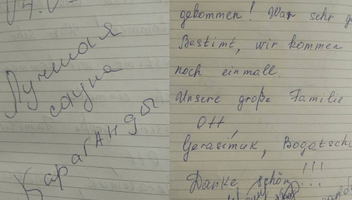 Лучшая
сауна
Караганды
gekommen! War sehr
Bestimt, wir kommen
noch einmall.
Unsere große Familie
Ott,
Gerasimuk,
Danke schön
!!!